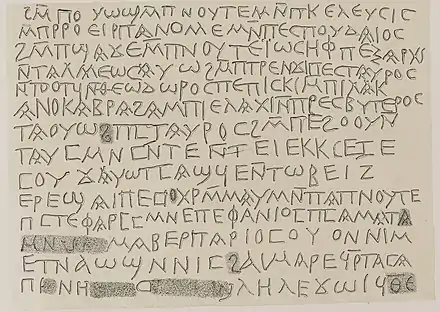 Ϩ̅ⲘⲠⲞⲨⲰϢⲘⲠⲚⲞⲨⲦⲈⲘⲚ̅ⲠⲔⲈⲖⲈⲨⲤⲒⲤ
ⲘⲠⲢⲢⲞⲈⲒⲢⲠⲀⲚⲞⲖⲈⲘⲚ̅ⲠⲈⲤⲠⲞⲨⲆⲀⲒⲞⲤ
ϨⲘⲠϢⲀϪⲈⲘⲠⲚⲞⲨⲦⲈⲒⲰⲤⲎⲪⲠⲈⲜⲀⲢⲬⲨ
ⲚⲦⲀⲖⲘⲈⲰⲤⲀⲨⲰϨⲘⲠⲦⲢⲈⲚϪⲒⲠⲈⲤⲦⲀⲨⲢⲞⲤ
ⲚⲦⲞⲞⲦϤⲚⲐⲈⲰⲆⲰⲢⲞⲤⲠⲈⲠⲒⲤⲔⲘⲠⲒⲖⲀⲔ
ⲀⲚⲞⲔⲀⲂⲢⲀϨⲀⲘⲠⲒⲈⲖⲀⲬⲘⲠⲢⲈⲤⲂⲨⲦⲈⲢⲞⲤ
ⲦⲀⲞⲨⲰϨⲠⲒⲤⲦⲀⲨⲢⲞⲤϨⲘⲠⲈϨⲞⲞⲨⲚ
ⲦⲀⲨⲤⲘⲚⲤⲚⲦⲈⲚ̅ϮⲈⲒⲈⲔⲔⲤⲈⲒⲈ
ⲤⲞⲨϪⲀⲨⲰⲦⲤⲀϢϤⲈⲚ̅ⲦⲰⲂⲈⲒⲌ
ⲈⲢⲈϢⲀⲒⲠⲈⲤⲞⲬⲢⲘ̅ⲘⲀⲨⲘⲚ̅ⲠⲀⲠⲚⲞⲨⲦⲈ
ⲠⲤⲦⲈⲪⲀⲢⲤⲤⲘⲚⲈⲠⲈⲪⲀⲚⲒⲞⲤⲠⲤⲀⲘⲀⲦⲀ
ⲘⲚ ⲘⲀⲂⲈⲢⲠⲀⲢⲒⲞⲤⲞⲨⲞⲚⲚⲒⲘ
ⲈⲦⲚⲀⲰϢⲚⲚⲒⲤϨⲀⲒⲘⲀⲢⲈϤⲢⲦⲀⲄⲀ
ⲠⲎ ⲚⲎ ⲖⲎⲖⲈϪⲰⲒ